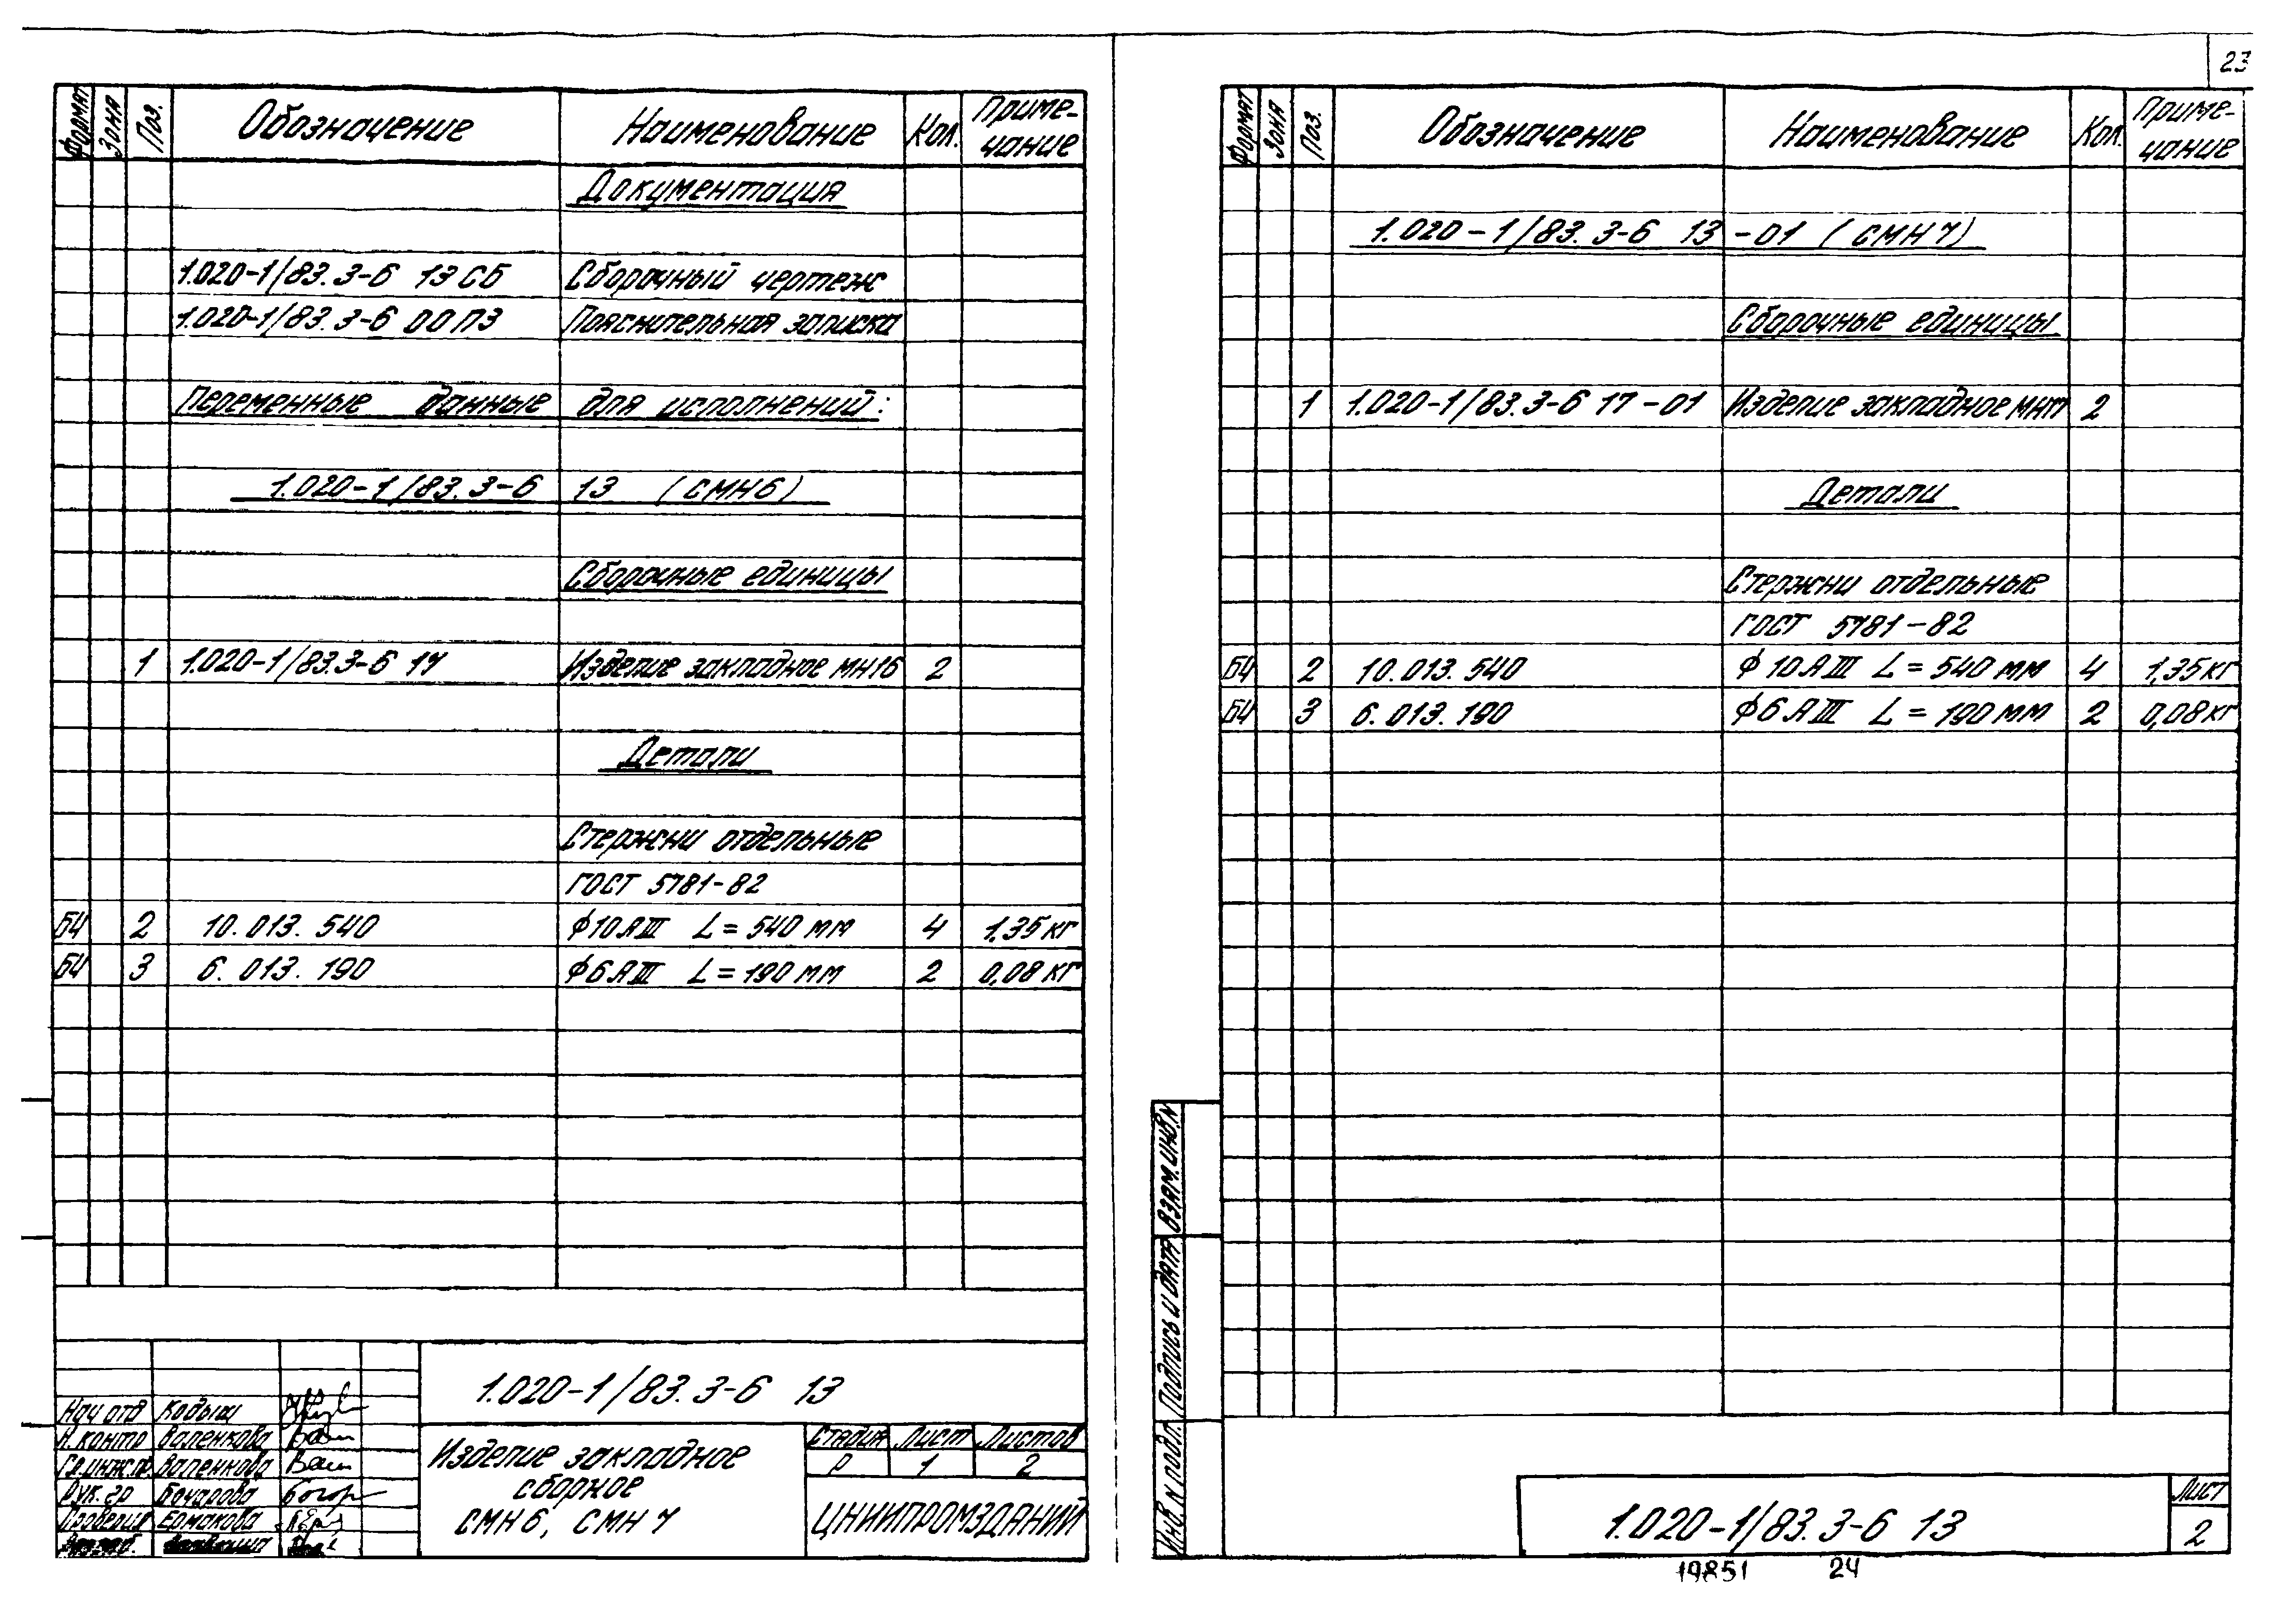 23
Формат Зона Поз. Обозначение Наименование Кол. Приме-
чание
Документация
1.020-1/83.3-6 13 СБ Сборочный чертеж
1.020-1/83.3-6 00 ПЗ Пояснительная записка
Переменные данные для исполнений:
1.020-1/83.3-6 13 (СМН6)
Сборочные единицы
1 1.020-1/83.3-6 17 Изделие закладное МН16 2
Детали
Стержни отдельные
ГОСТ 5781-82
БЧ 2 10.013.540 Ф10АIII L=540 мм 4 1,35 кг
БЧ 3 6.013.190 Ф6АIII L=190 мм 2 0,08 кг
1.020-1/83.3-6 13
Нач отд Кодыш
Н. контр Валенкова
Гл.инж.пр. Валенкова
Рук. гр Бочарова
Проверил Ермакова
Разраб.
Изделие закладное
сборное
СМН 6, СМН 7
Стадия Лист Листов
Р 1 2
ЦНИИПРОМЗДАНИЙ
Формат Зона Поз. Обозначение Наименование Кол. Приме-
чание
1.020-1/83.3-6 13 -01 (СМН7)
Сборочные единицы
1 1.020-1/83.3-6 17-01 Изделие закладное МН17 2
Детали
Стержни отдельные
ГОСТ 5781-82
БЧ 2 10.013.540 Ф10АIII L=540 мм 4 1,35 кг
БЧ 3 6.013.190 Ф6АIII L=190 мм 2 0,08 кг
Взам. инв. N
Подпись и дата
Инв. N подл.
1.020-1/83.3-6 13
Лист
2
19851 24